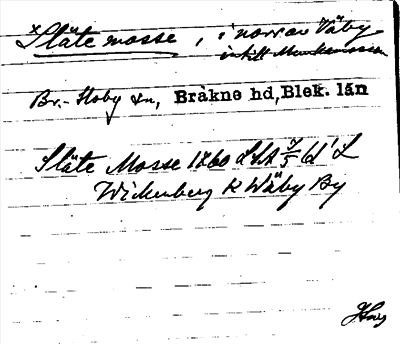 × Släte mosse, i norra Väby
intill Munkamossen
Br.-Hoby sn, Bräkne hd, Blek. län
Släte Mosse 1860 LSA 7/5 Ll' L
Wickenberg K Wäby By